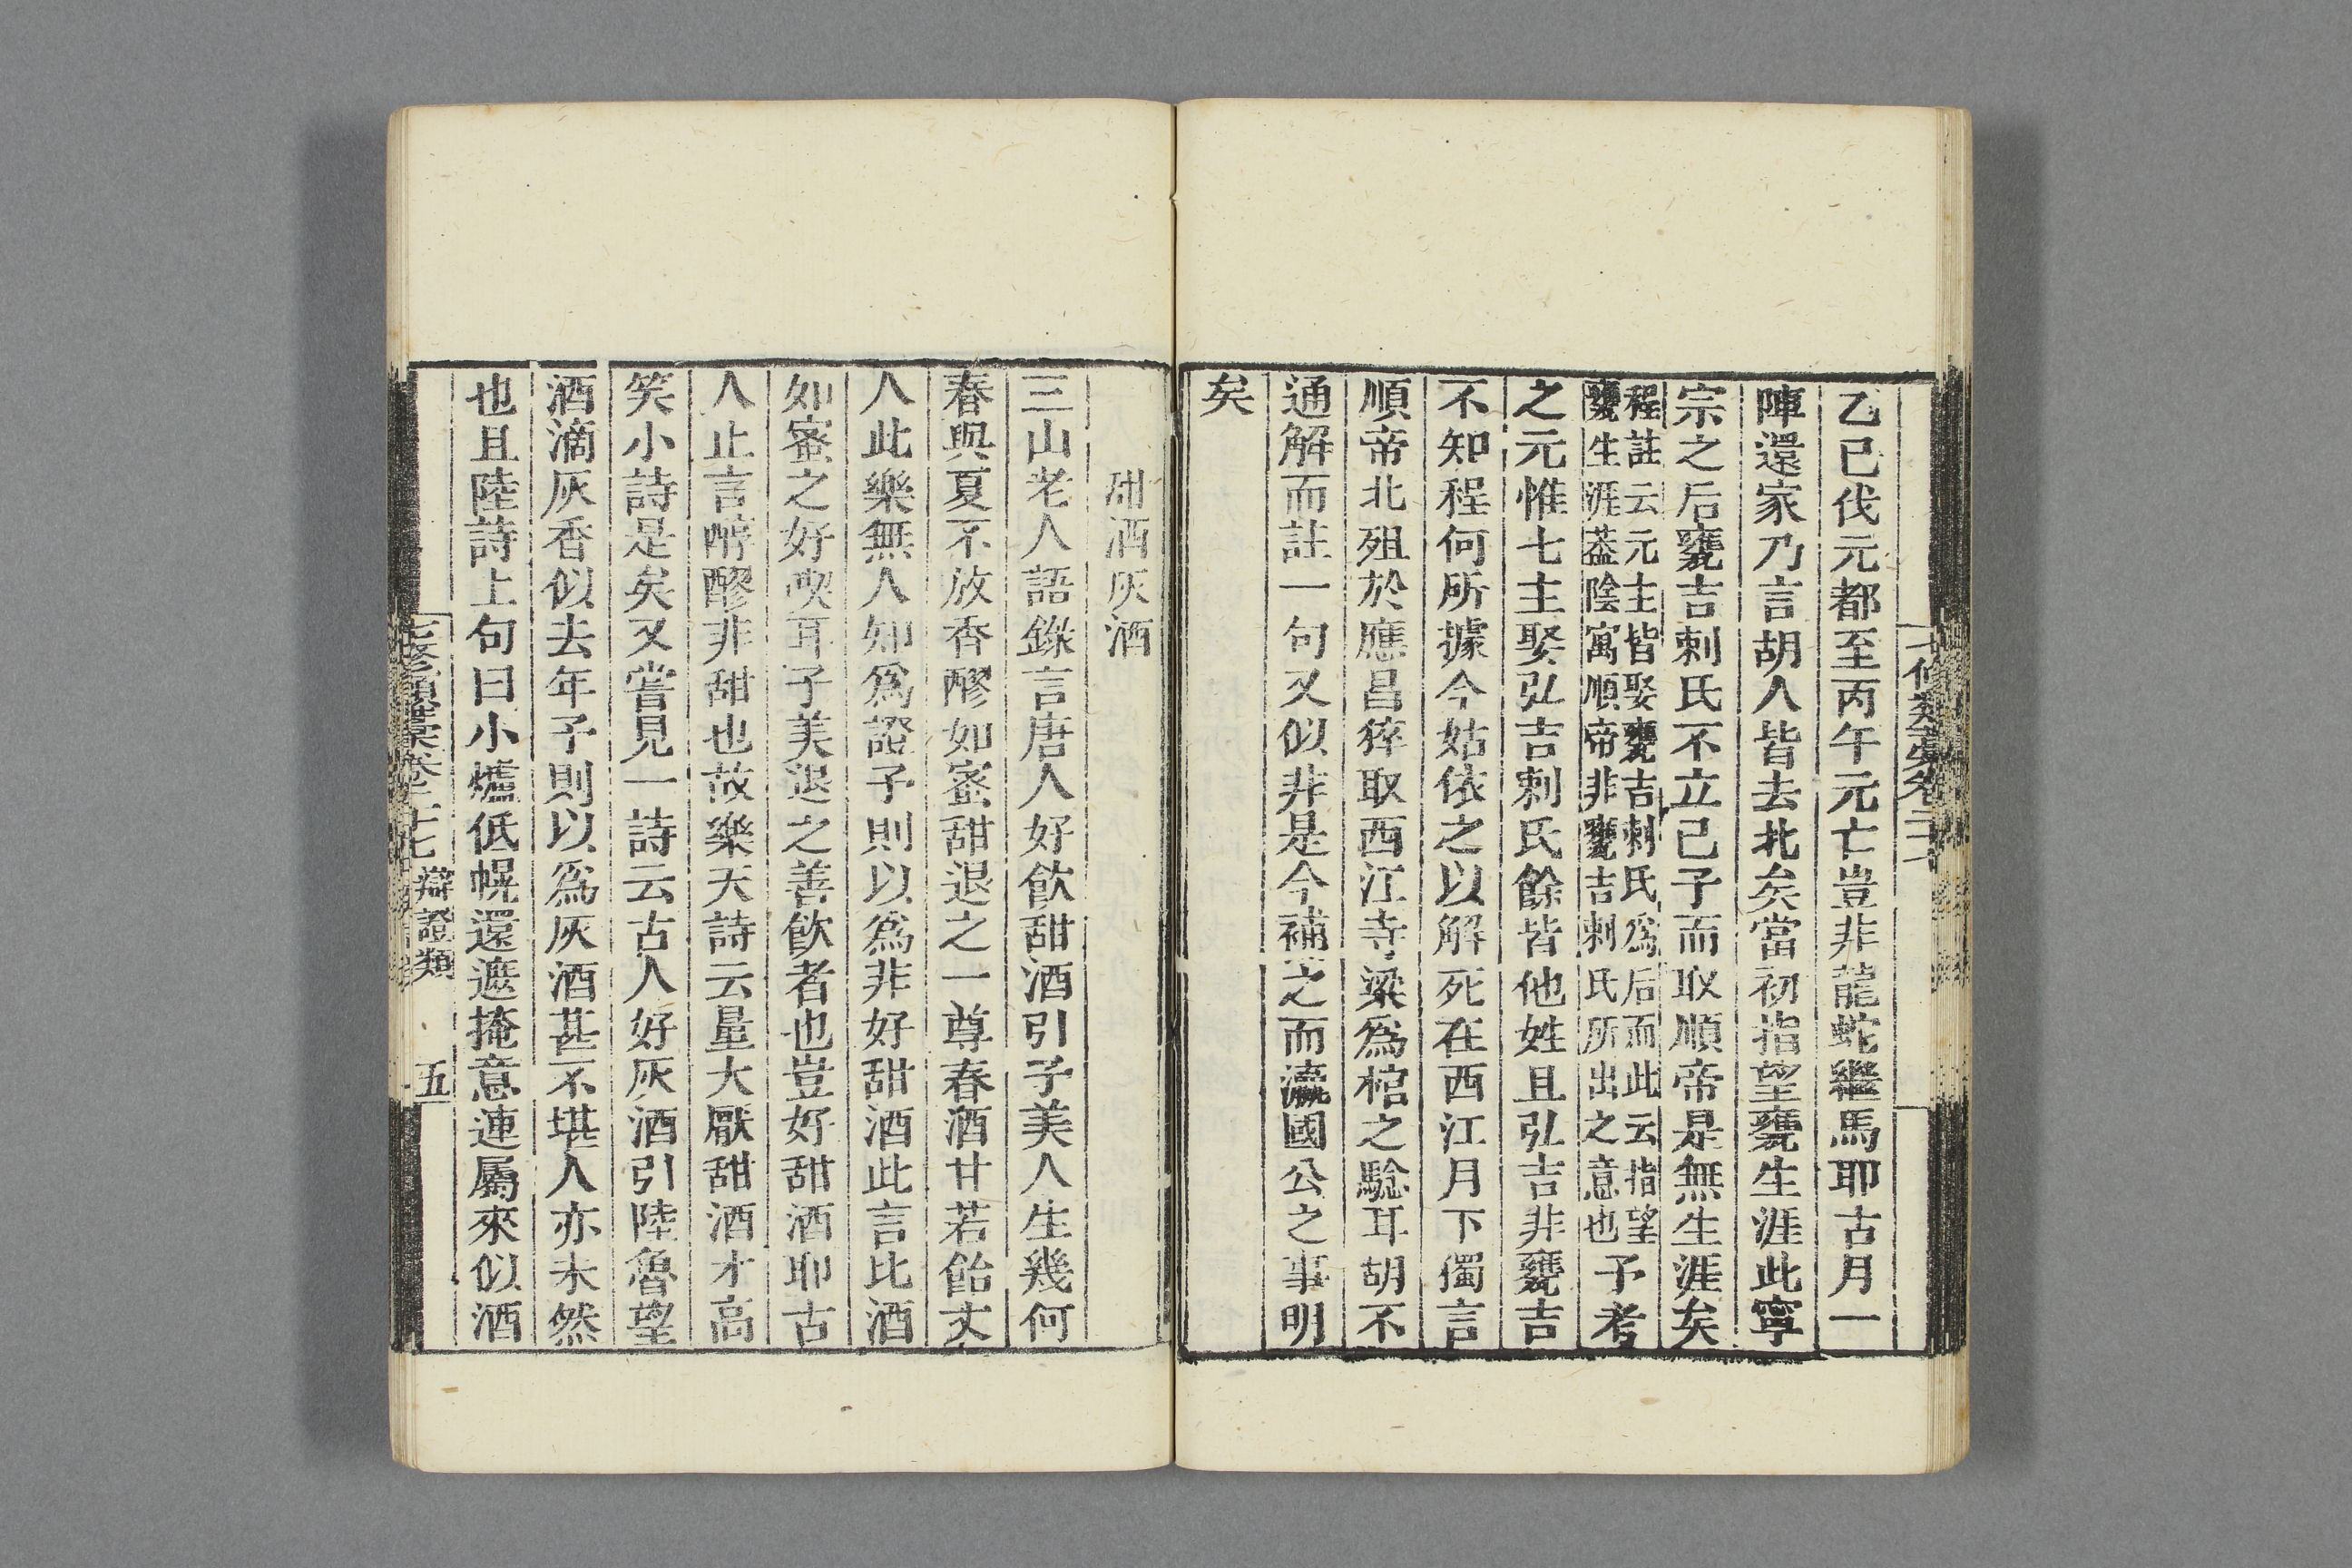 乙巳伐元都至丙午元亡豈非龍蛇繼馬耶古月一
陣還家乃言胡人皆去北矣當初指望甕生涯此寧
宗之后甕吉剌氏不立己子而取順帝是無生涯矣
程註云元主皆娶甕吉剌氏為后而此云指望
甕生涯葢陰寓順帝非甕吉剌氏所出之意也
予考
之元惟七主娶弘吉剌氏餘皆他姓且弘吉非甕吉
不知程何所據今姑依之以解死在西江月下獨言
順帝北殂於應昌猝取西江寺梁為棺之驗耳胡不
通解而註一句又似非是今補之而瀛國公之事明
矣
甜酒灰酒
三山老人語錄言唐人好飲甜酒引子美人生幾何
春與夏不放香醪如蜜甜退之一尊春酒甘若飴丈
人此樂無人知為證予則以為非好甜酒此言比酒
如蜜之好喫耳子美退之善飲者也豈好甜酒耶古
人止言醇醪非甜也故樂天詩云量大厭甜酒才高
笑小詩是矣又嘗見一詩云古人好灰酒引陸魯望
酒滴灰香似去年予則以為灰酒甚不堪人亦未然
也且陸詩上句曰小爐低幌還遮掩意連屬來似酒
七修類藁卷二十七 辯證類 五